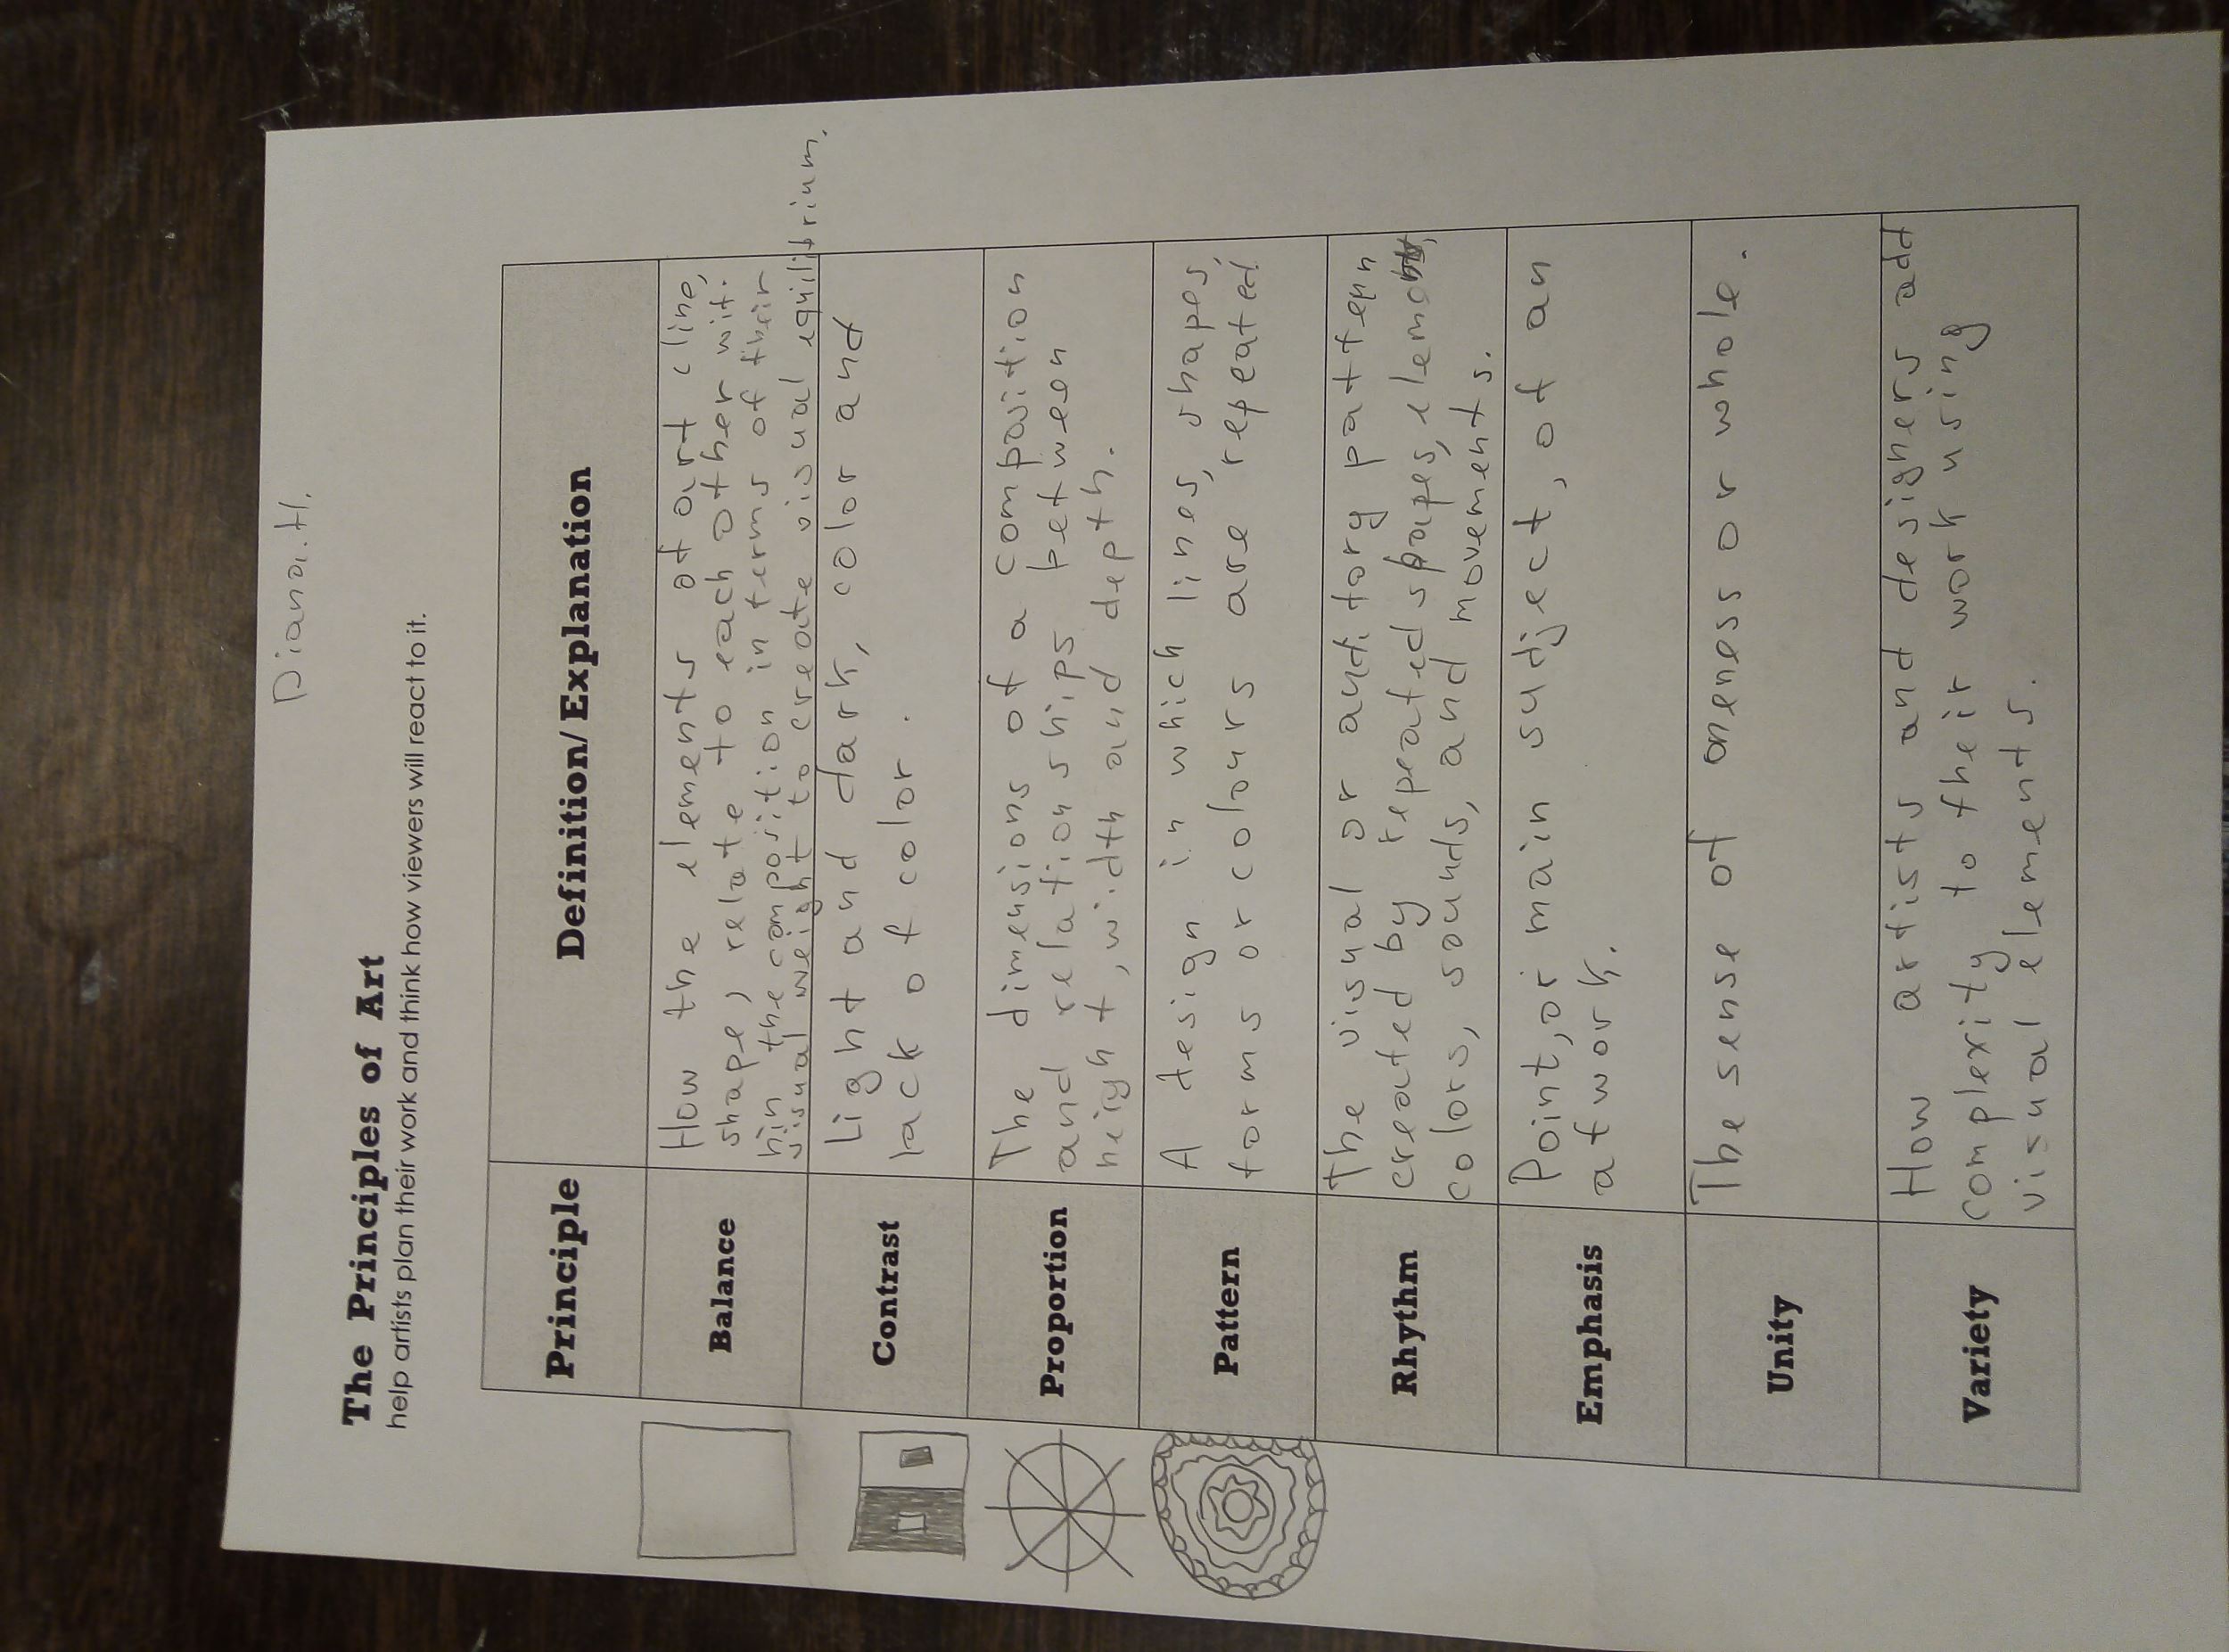 Diana.H.
The Principles of Art
help artists plan their work and think how viewers will react to it.
Principle
Definition/ Explanation
Balance
How the elements of art (line,
shape) relate to each other wit.
hin the composition in terms of their
visual weight to create visual equilibrium.
Contrast
Light and dark, color and
lack of color.
Proportion
The dimensions of a composition
and relationships between
height, width and depth.
Pattern
A design in which lines, shapes,
forms or colours are repeated
Rhythm
The visual or auditory pattern
created by repeated shapes,
colors, sounds, and movements.
Emphasis
Point, or main subject, of an
artwork.
Unity
The sense of oneness or whole.
Variety
How artists and designers add
complexity to their work using
visual elements.